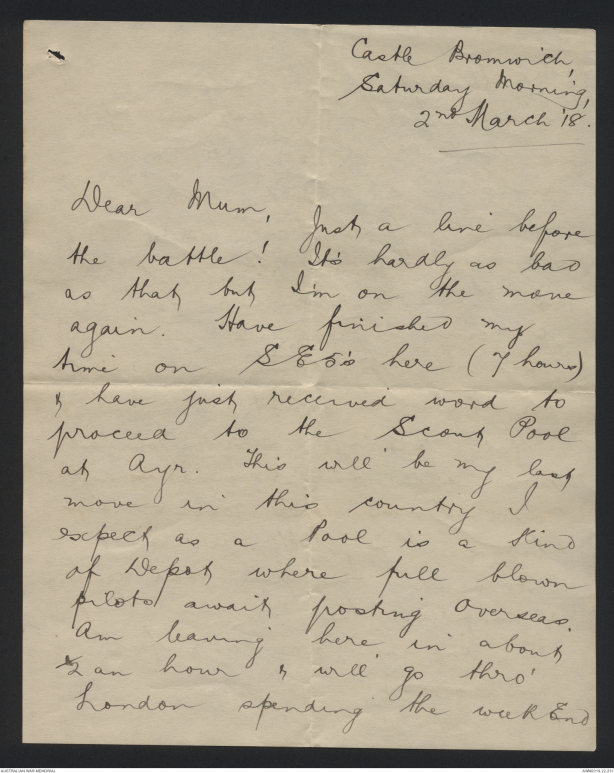 Castle Bromwich,
Saturday Morning,
2nd March '18.
Dear Mum,
Just a line before
the battle! It's hardly as bad
as that but I'm on the move
again. Have finished my
time on SE5's here (7 hours)
& have just received word to
proceed to the Scout Pool
at Ayr. This will be my last
move in this country I
expect as a Pool is a kind
of Depot where full blown
pilots await posting overseas.
Am leaving here in about
½ an hour & will go thro'
London spending the week End
AUSTRALIAN WAR MEMORIAL